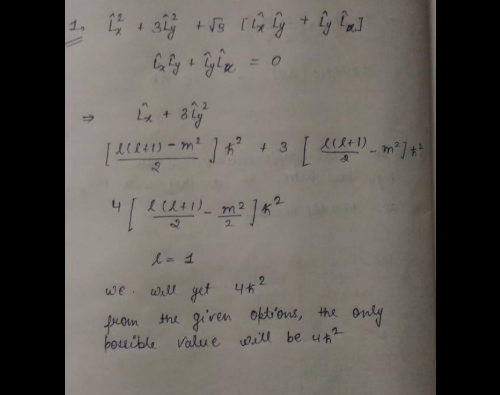 1. L̂x² + 3L̂y² + √3 [L̂x L̂y + L̂y L̂x]
L̂x L̂y + L̂y L̂x = 0
⇒ L̂x + 3L̂y²
[l(l+1) - m² / 2] ħ² + 3 [l(l+1)/2 - m²] ħ²
4 [l(l+1)/2 - m²/2] ħ²
l = 1
we will get 4ħ²
from the given options, the only
possible value will be 4ħ²